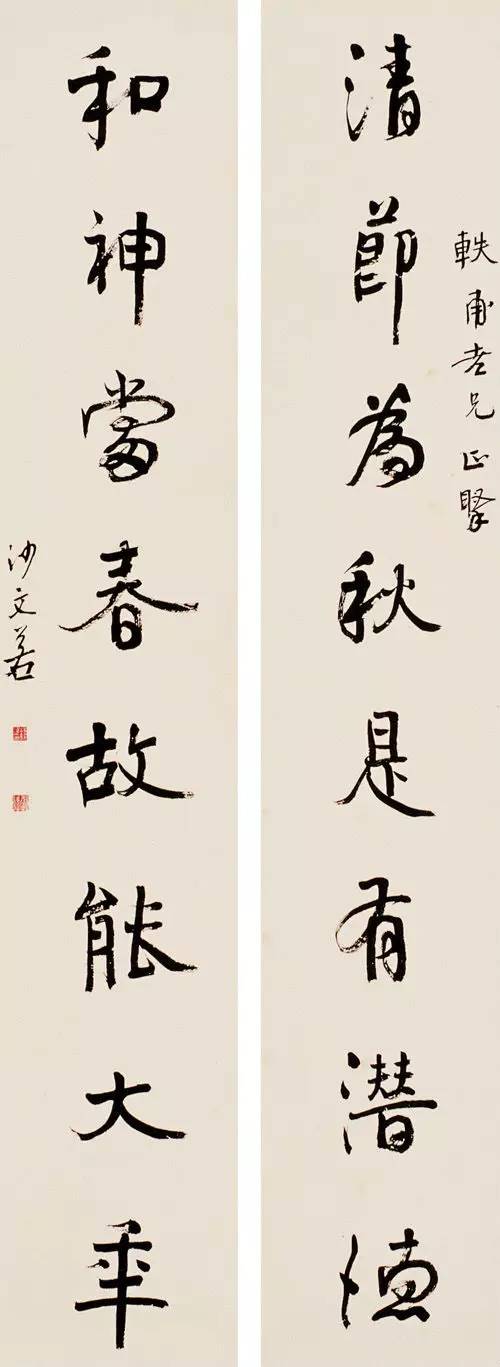 軼甫老兄正
清節為秋是有潛德
和神當春故能大年
沙文若